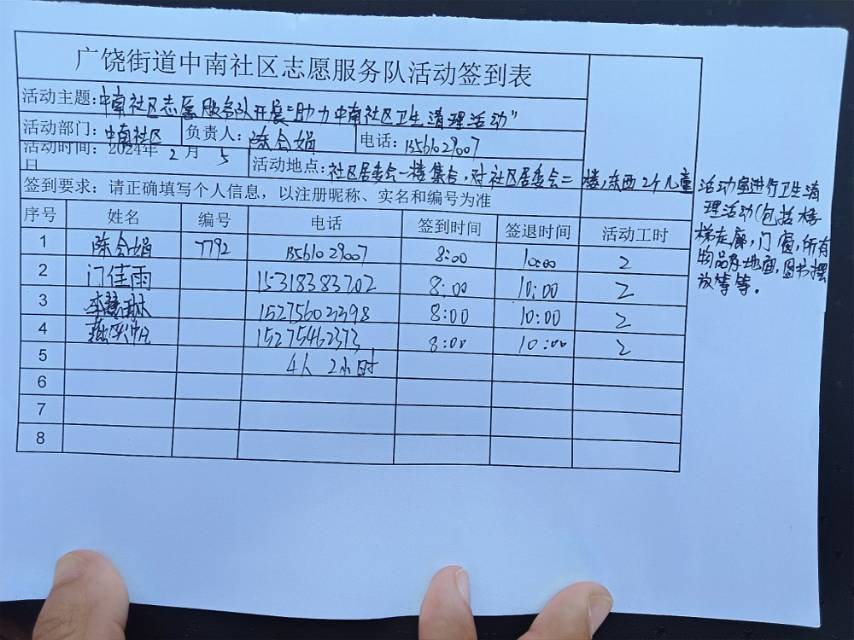 广饶街道中南社区志愿服务队活动签到表
活动主题:中南社区志愿服务队开展“助力中南社区卫生清理活动”
活动部门:中南社区 负责人:陈会娟 电话:13561029007
活动时间:2024年 2 月 5 日 活动地点:社区居委会一楼集合,对社区居委会二楼,东西2个儿童
活动室进行卫生清
理活动(包括楼
梯走廊,门窗,所有
物品及地面,图书摆
放等等。
签到要求:请正确填写个人信息,以注册昵称、实名和编号为准
序号 姓名 编号 电话 签到时间 签退时间 活动工时
1 陈会娟 7792 13561029007 8:00 10:00 2
2 门佳雨 15318383702 8:00 10:00 2
3 李慧琳 15275602398 8:00 10:00 2
4 15275462373 8:00 10:00 2
5 4人 2小时
6
7
8